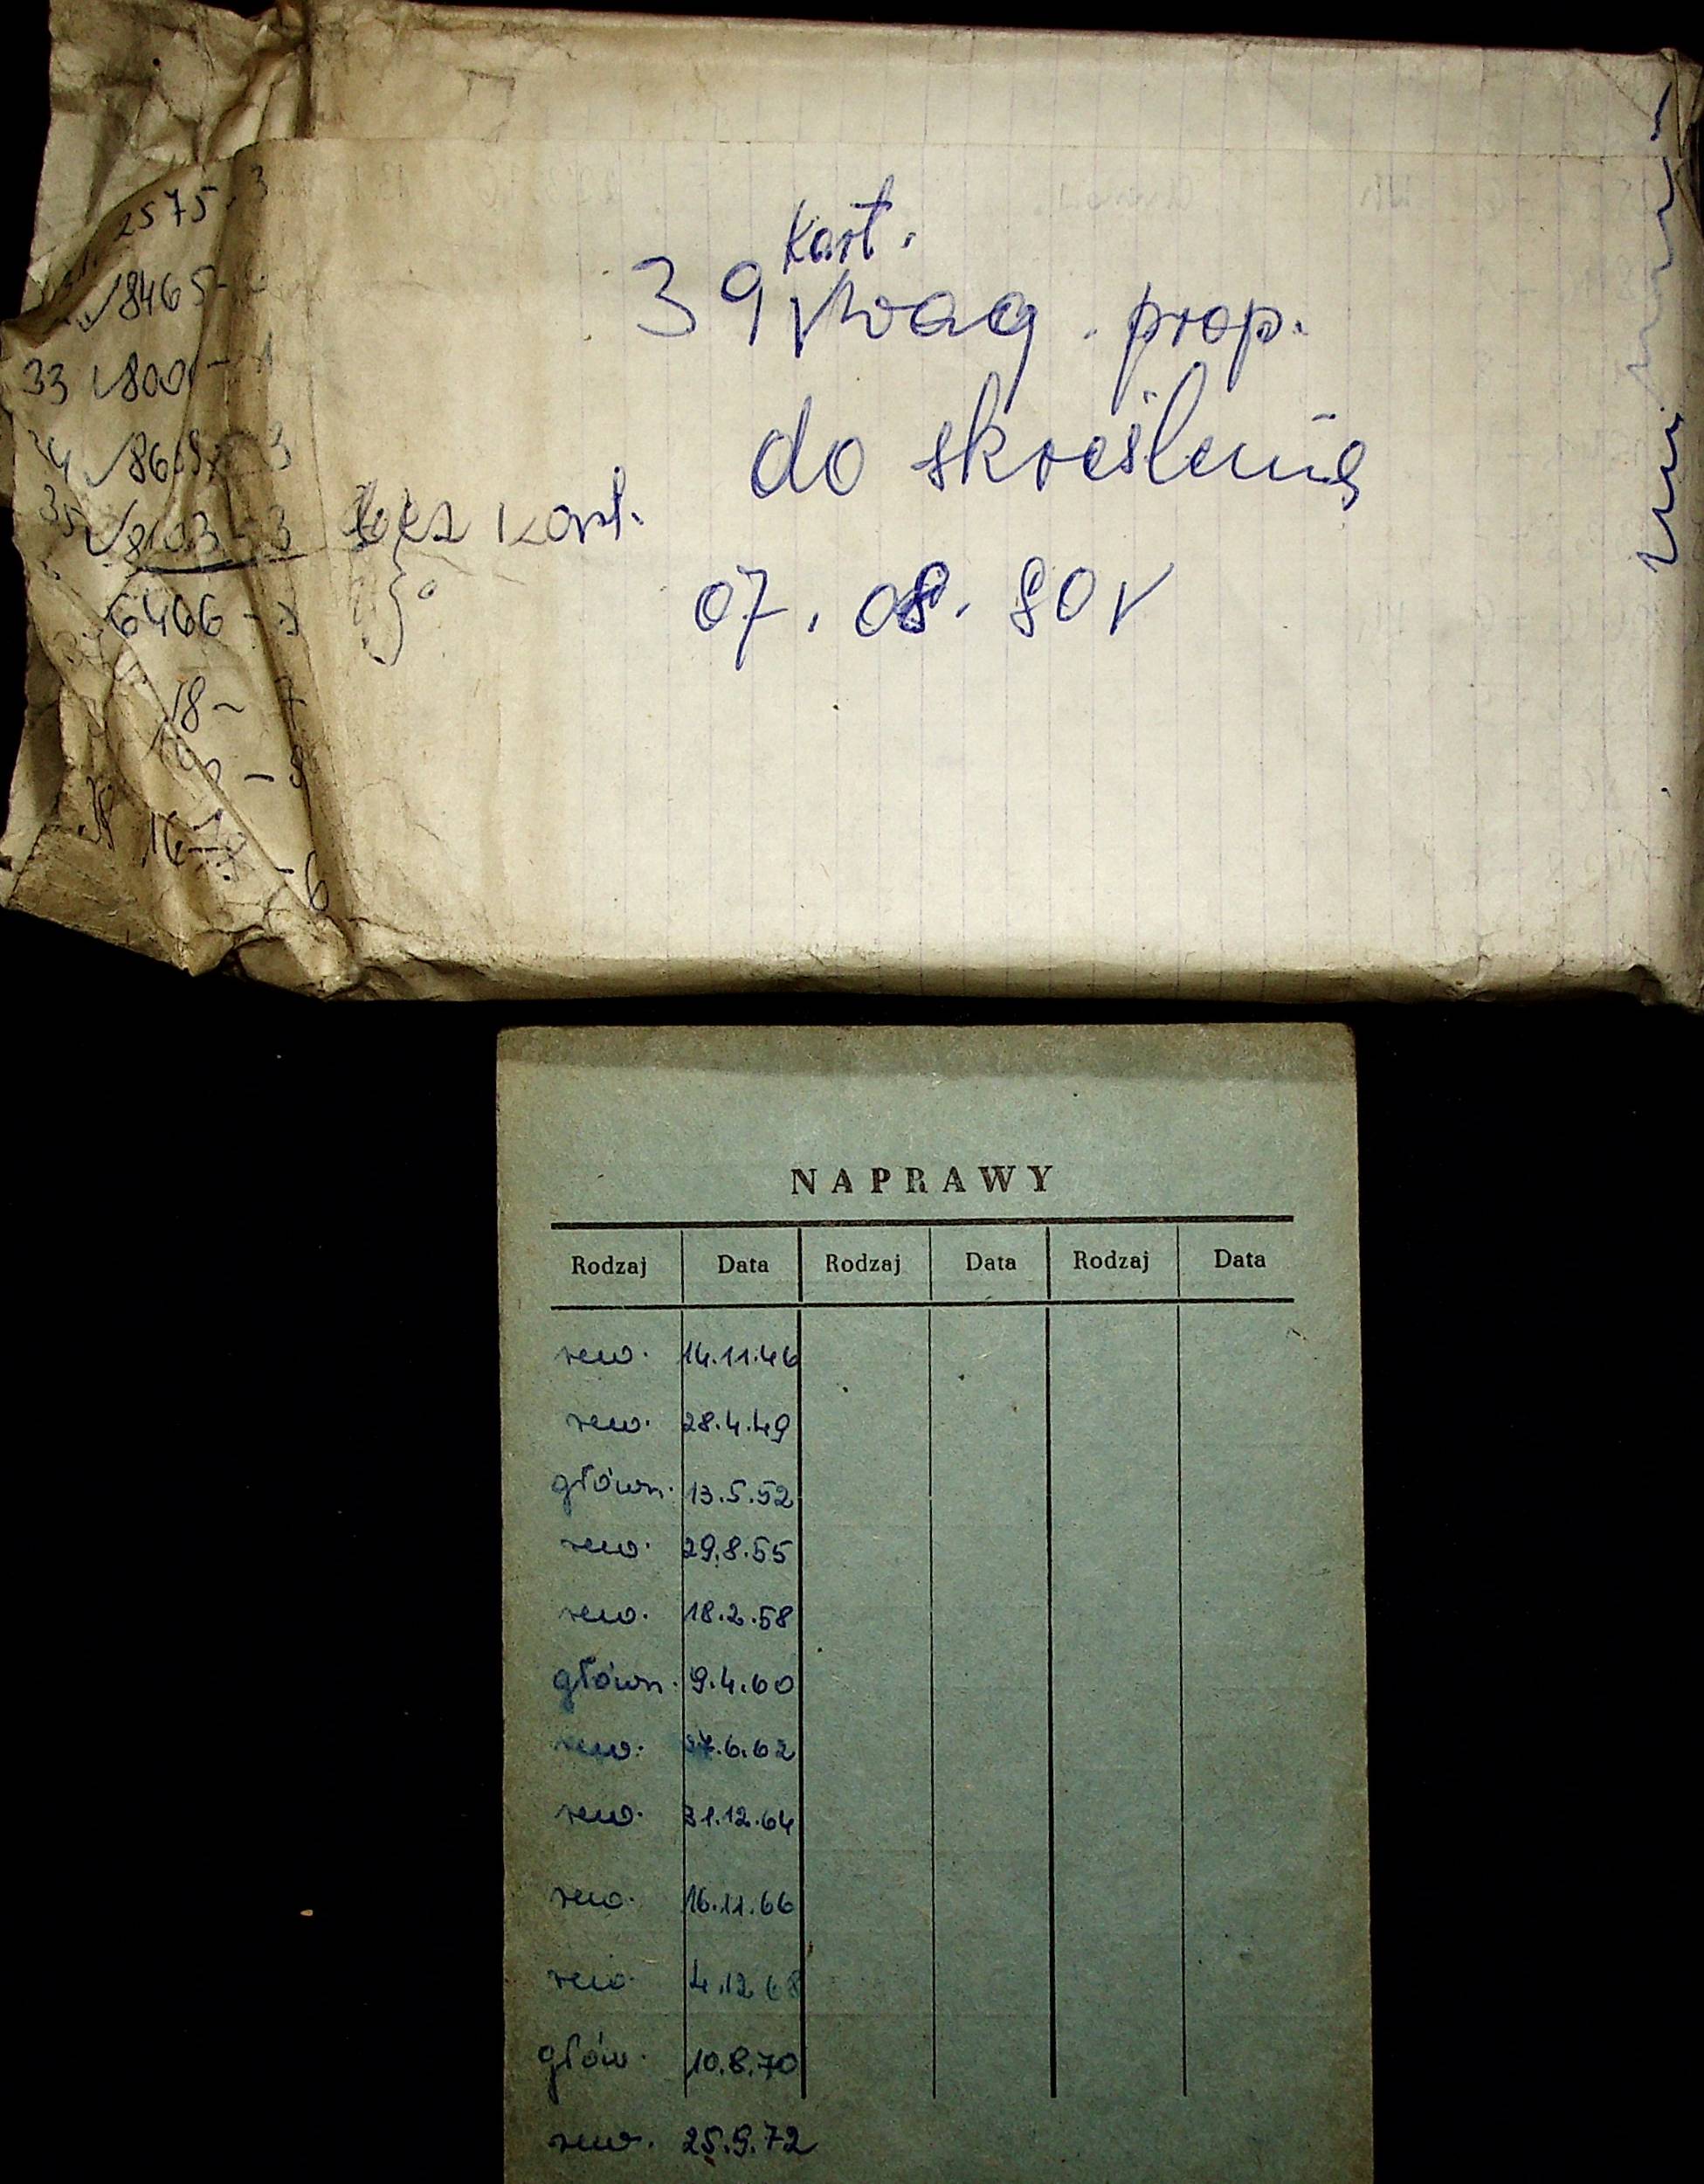 2575-3
8465-
33 800 - 1
3
35 8103-3 bez kart.
6406 -
18 - 7
- 6
kart.
39 wag. prop.
do skreślenia
07. 08. 80 r
NAPRAWY
Rodzaj Data Rodzaj Data Rodzaj Data
rew. 14.11.46
rew. 28.4.49
główn. 13.5.52
rew. 29.8.55
rew. 18.2.58
główn. 9.4.60
rew. 27.6.62
rew. 31.12.64
rew. 16.11.66
rew. 4.12.68
głów. 10.8.70
rew. 25.9.72